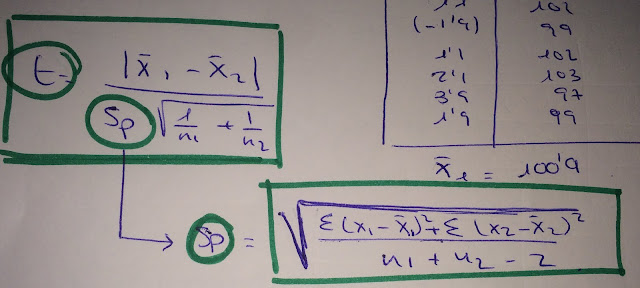 t = |x̄₁ - x̄₂| / Sp √(1/n₁ + 1/n₂)
1'1 102
(-1'9) 99
1'1 102
2'1 103
3'9 97
1'9 99
x̄₁ = 100'9
Sp = √(Σ(x₁-x̄₁)²+Σ(x₂-x̄₂)² / n₁ + n₂ - 2)